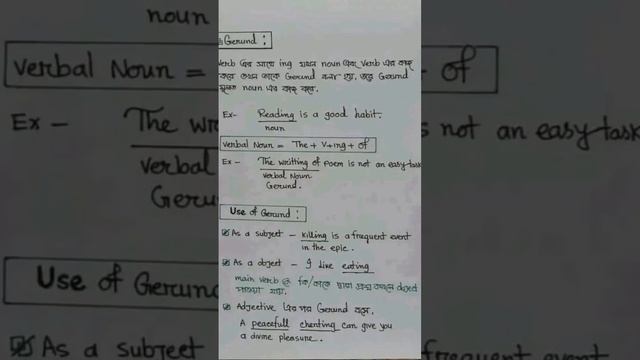 Gerund :
Verb এর সাথে ing যখন noun এবং Verb এর কাজ
করে তখন তাকে Gerund বলা হয়, তবে Gerund
মূলত noun এর কাজ করে.
Ex- Reading is a good habit.
noun
Verbal Noun = The + V+ing + of
Ex - The writting of poem is not an easy task
verbal Noun
Gerund.
Use of Gerund :
As a subject - killing is a frequent event
in the epic.
As a object - I like eating
main verb কে কি/কাকে দ্বারা প্রশ্ন করলে object
পাওয়া যায়.
Adjective এর পর Gerund বসে.
A peacefull chenting can give you
a divine pleasure.